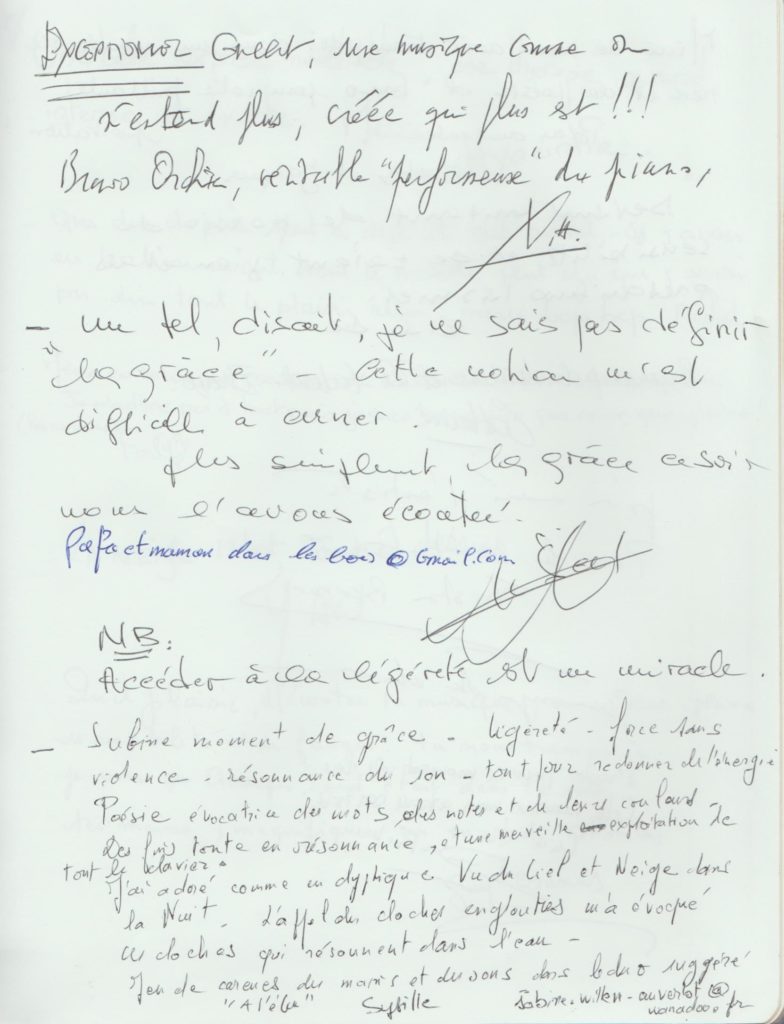 EXCEPTIONNEL Concert, une musique comme on
n'entend plus, créée qui plus est !!!
Bravo, véritable "performeuse" du piano,
- un tel, disait, je ne sais pas définir
"la grâce" - Cette notion m'est
difficile à cerner.
plus simplement, la grâce ce soir
nous l'avons écoutée.
papa et maman dans les bois @ Gmail.com
NB:
Accéder à la légéreté est un miracle.
- Sublime moment de grâce - légèreté - force sans
violence - résonnance du son - tout pour redonner de l'énergie
Poésie évocatrice des mots, des notes et de leurs couleurs -
toute en résonnance, et une merveille exploitation de
tout le clavier.
J'ai adoré comme un dyptique Vu du Ciel et Neige dans
la Nuit. L'appel du clocher englouties m'a évoqué
ces cloches qui résonnent dans l'eau -
Jeu de caresses du mains et du sons dans le duo suggéré
Sybille